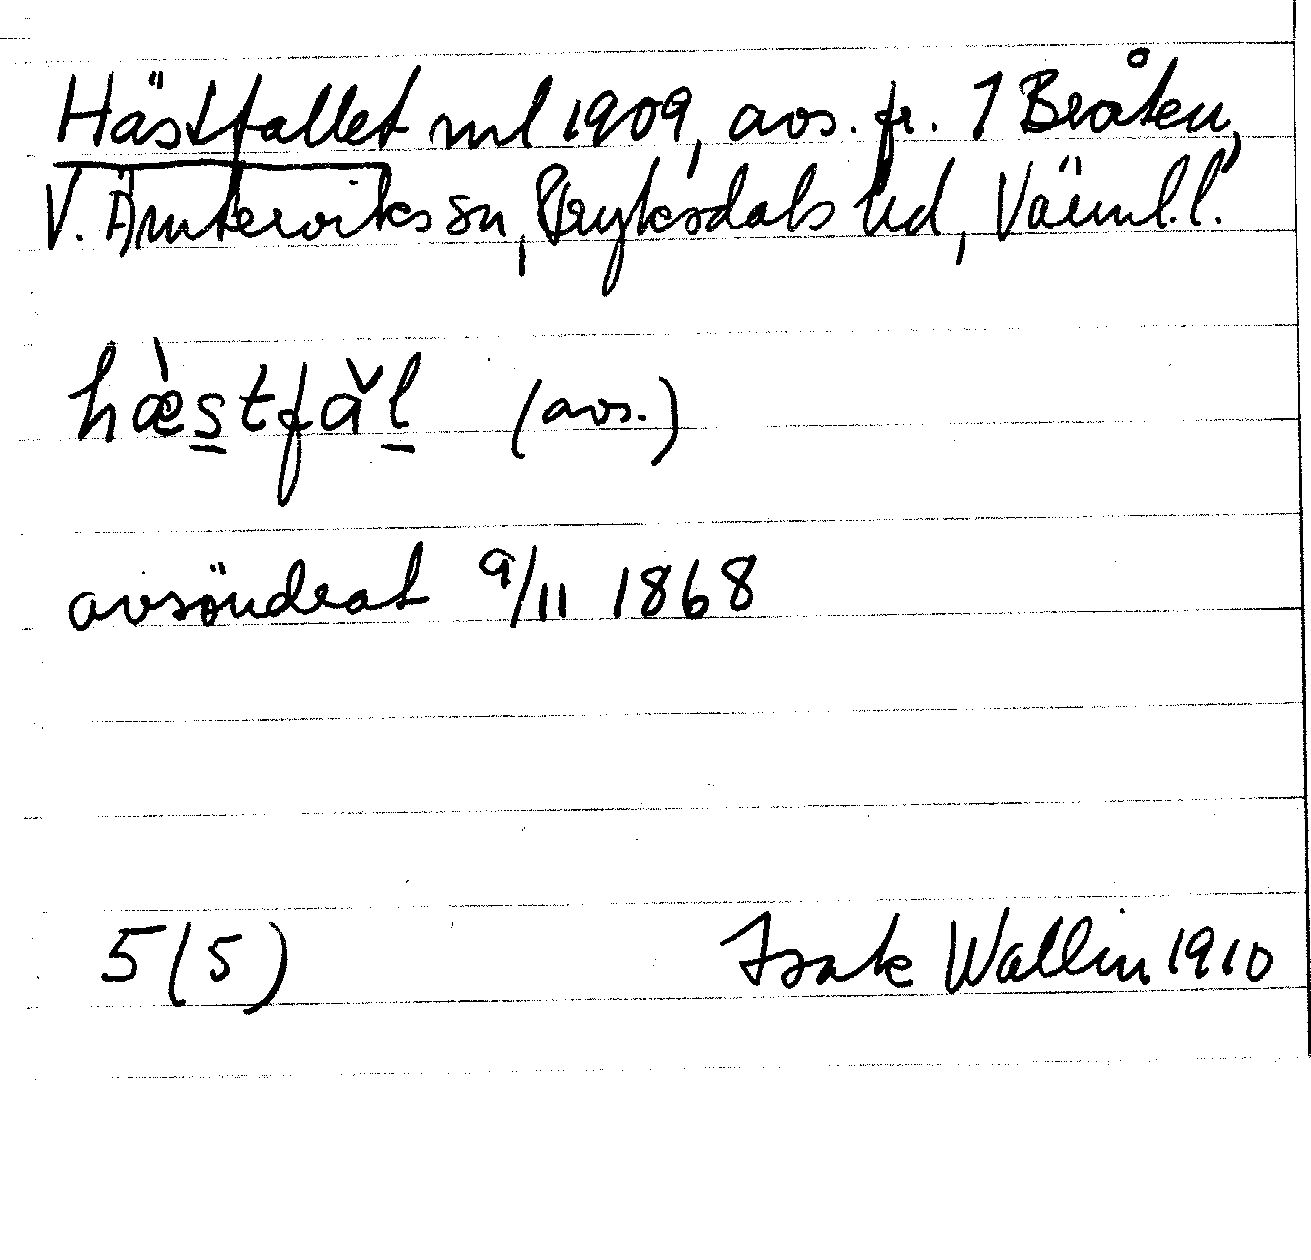 Hästfallet ml 1909, avs. fr. 1 Bråten,
V. Ämterviks sn, Fryksdals hd, Värml. l.
hæ̀s̲tfåľ̲ (avs.)
avsöndrat 9/11 1868
5(5) Isak Wallin 1910